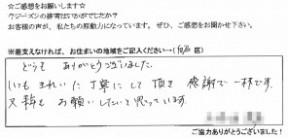 ☆ご感想をお願いします☆
クリーニングの
お客様の声が、私たちの原動力になっています。ぜひ、ご感想をお聞かせ下さい。
※差支えなければ、お住まいの地域をご記入ください→( 区)
どうも ありがとうございました。
いつも きれいに 丁寧にして 頂き 感謝で一杯です。
又 お願いしたいと思っています。
ご協力ありがとうございました!